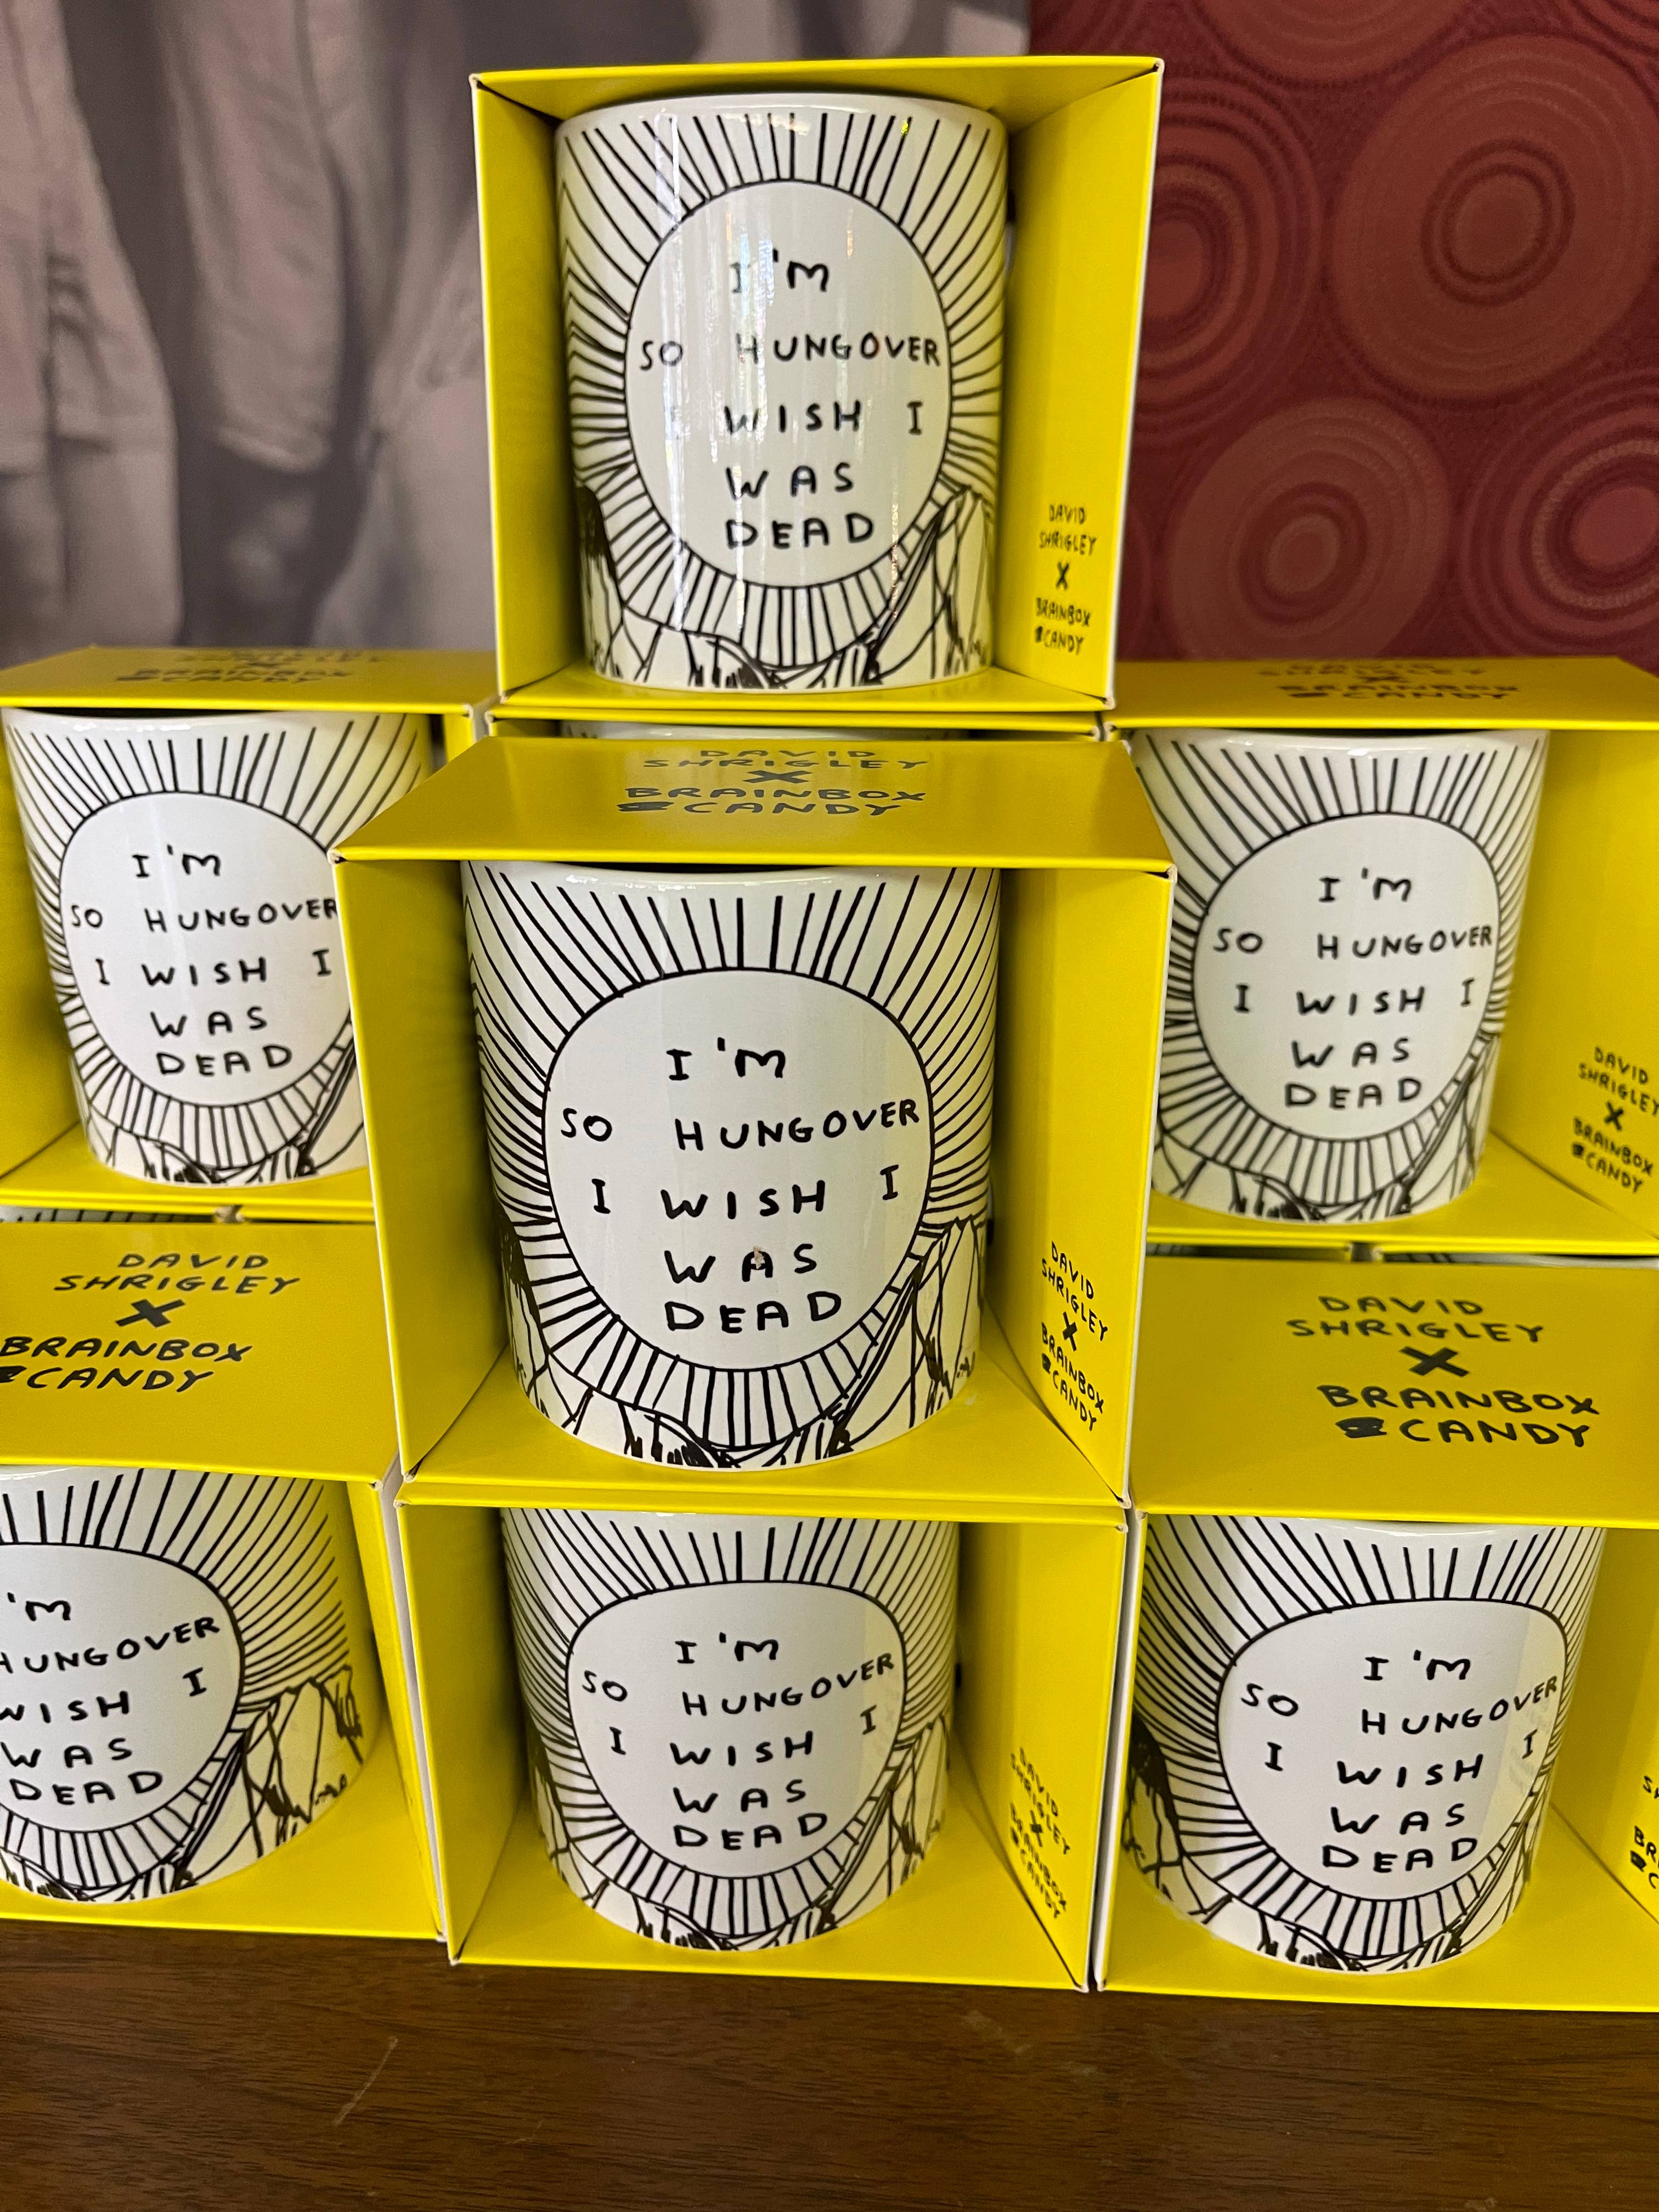 I'M
SO HUNGOVER
WISH I
WAS
DEAD
DAVID
SHRIGLEY
X
BRAINBOX
CANDY
DAVID
SHRIGLEY
X
BRAINBOX
CANDY
I'M
SO HUNGOVER
I WISH I
WAS
DEAD
DAVID
SHRIGLEY
X
BRAINBOX
CANDY
I'M
SO HUNGOVER
I WISH I
WAS
DEAD
DAVID
SHRIGLEY
X
BRAINBOX
CANDY
DAVID
SHRIGLEY
X
BRAINBOX
CANDY
I'M
SO HUNGOVER
I WISH I
WAS
DEAD
DAVID
SHRIGLEY
X
BRAINBOX
CANDY
DAVID
SHRIGLEY
X
BRAINBOX
CANDY
'M
HUNGOVER
WISH I
WAS
DEAD
I'M
SO HUNGOVER
I WISH I
WAS
DEAD
DAVID
SHRIGLEY
X
BRAINBOX
CANDY
DAVID
SHRIGLEY
X
BRAINBOX
CANDY
I'M
SO HUNGOVER
I WISH I
WAS
DEAD